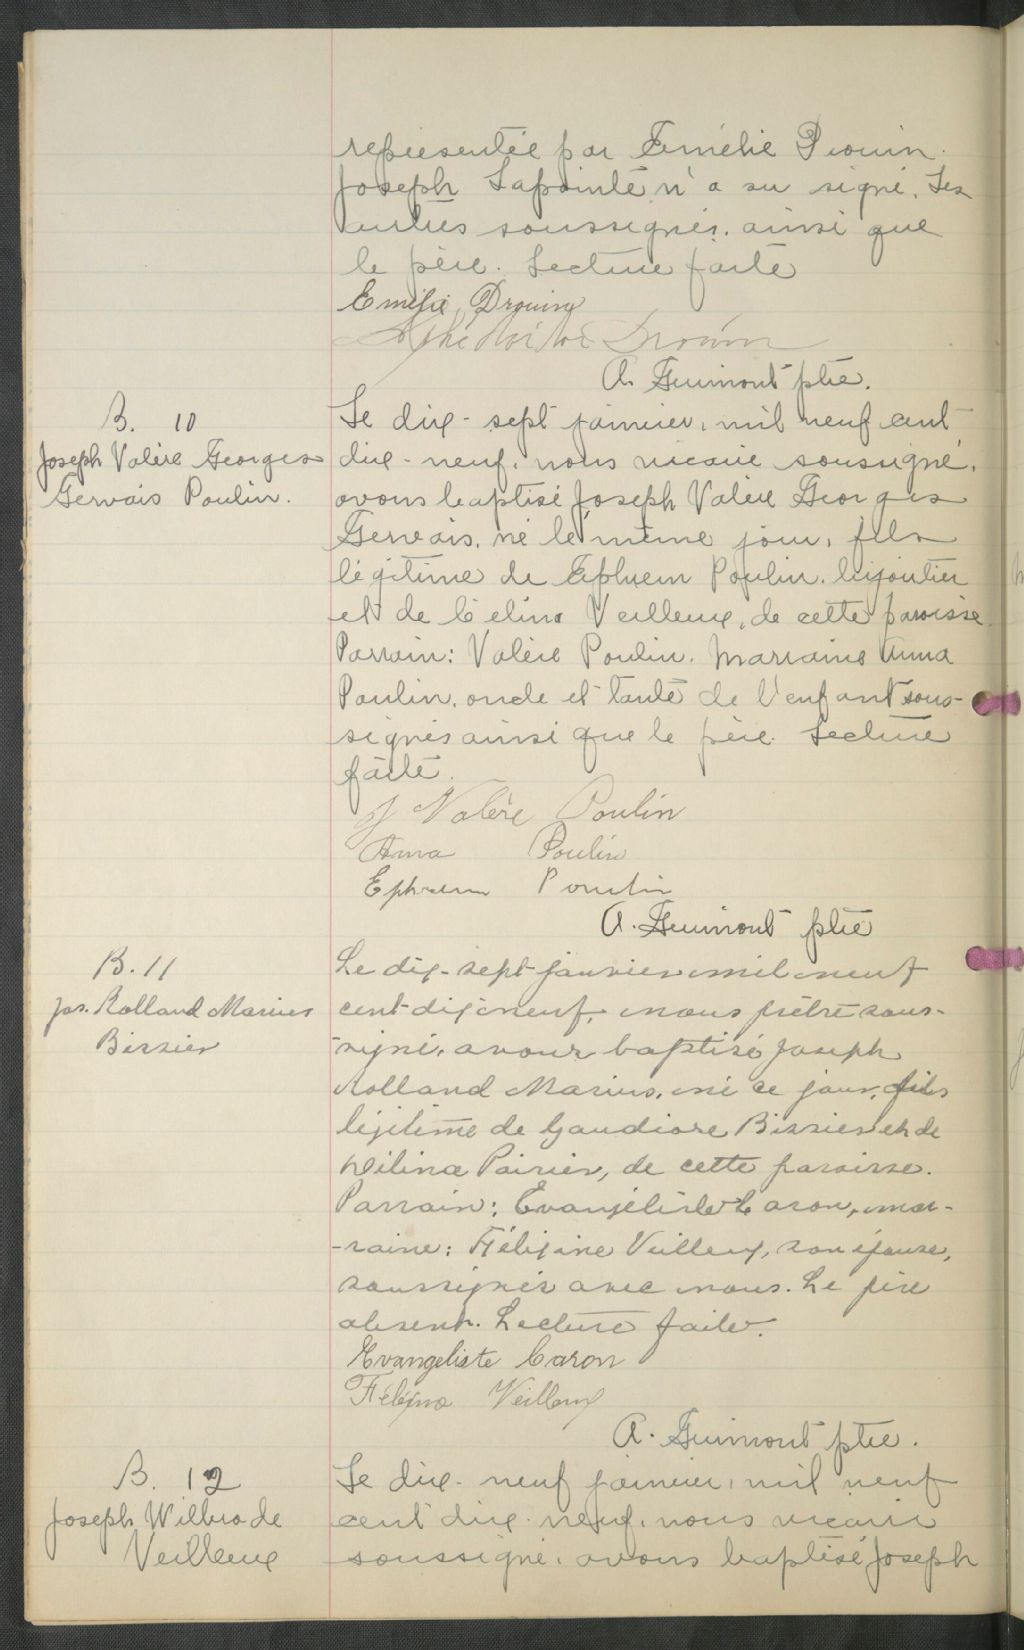 représentée par Emélie Drouin.
Joseph Lapointe n'a su signé. Les
autres soussignés. ainsi que
le père. Lecture faite
Emilia Drouin
Drouin
A. Guimont ptre.
B. 10
Joseph Valère Georges
Gervais Poulin.
Le dix-sept janvier, mil neuf cent
dix-neuf, nous vicaire soussigné,
avons baptisé Joseph Valère Georges
Gervais, né le même jour, fils
légitime de Ephrem Poulin, bijoutier
et de Célina Veilleux, de cette paroisse.
Parrain: Valère Poulin. Marraine Anna
Poulin, oncle et tante de l'enfant sous-
signés ainsi que le père. Lecture
faite.
J Valère Poulin
Anna Poulin
Ephrem Poulin
A. Guimont ptre
B. 11
Jos. Rolland Marius
Bizier
Le dix-sept janvier mil neuf
cent dix neuf, nous prêtre sous-
signé, avons baptisé Joseph
Rolland Marius, né ce jour, fils
légitime de Gaudiore Bizier et de
Poirier, de cette paroisse.
Parrain: Evangéliste Caron, mar-
-raine: Félixine Veilleux, son épouse,
soussignés avec nous. Le père
absent. Lecture faite.
Evangeliste Caron
Veilleux
A. Guimont ptre.
B. 12
Joseph Wilbrode
Veilleux
Le dix-neuf janvier, mil neuf
cent dix-neuf, nous vicaire
soussigné, avons baptisé Joseph